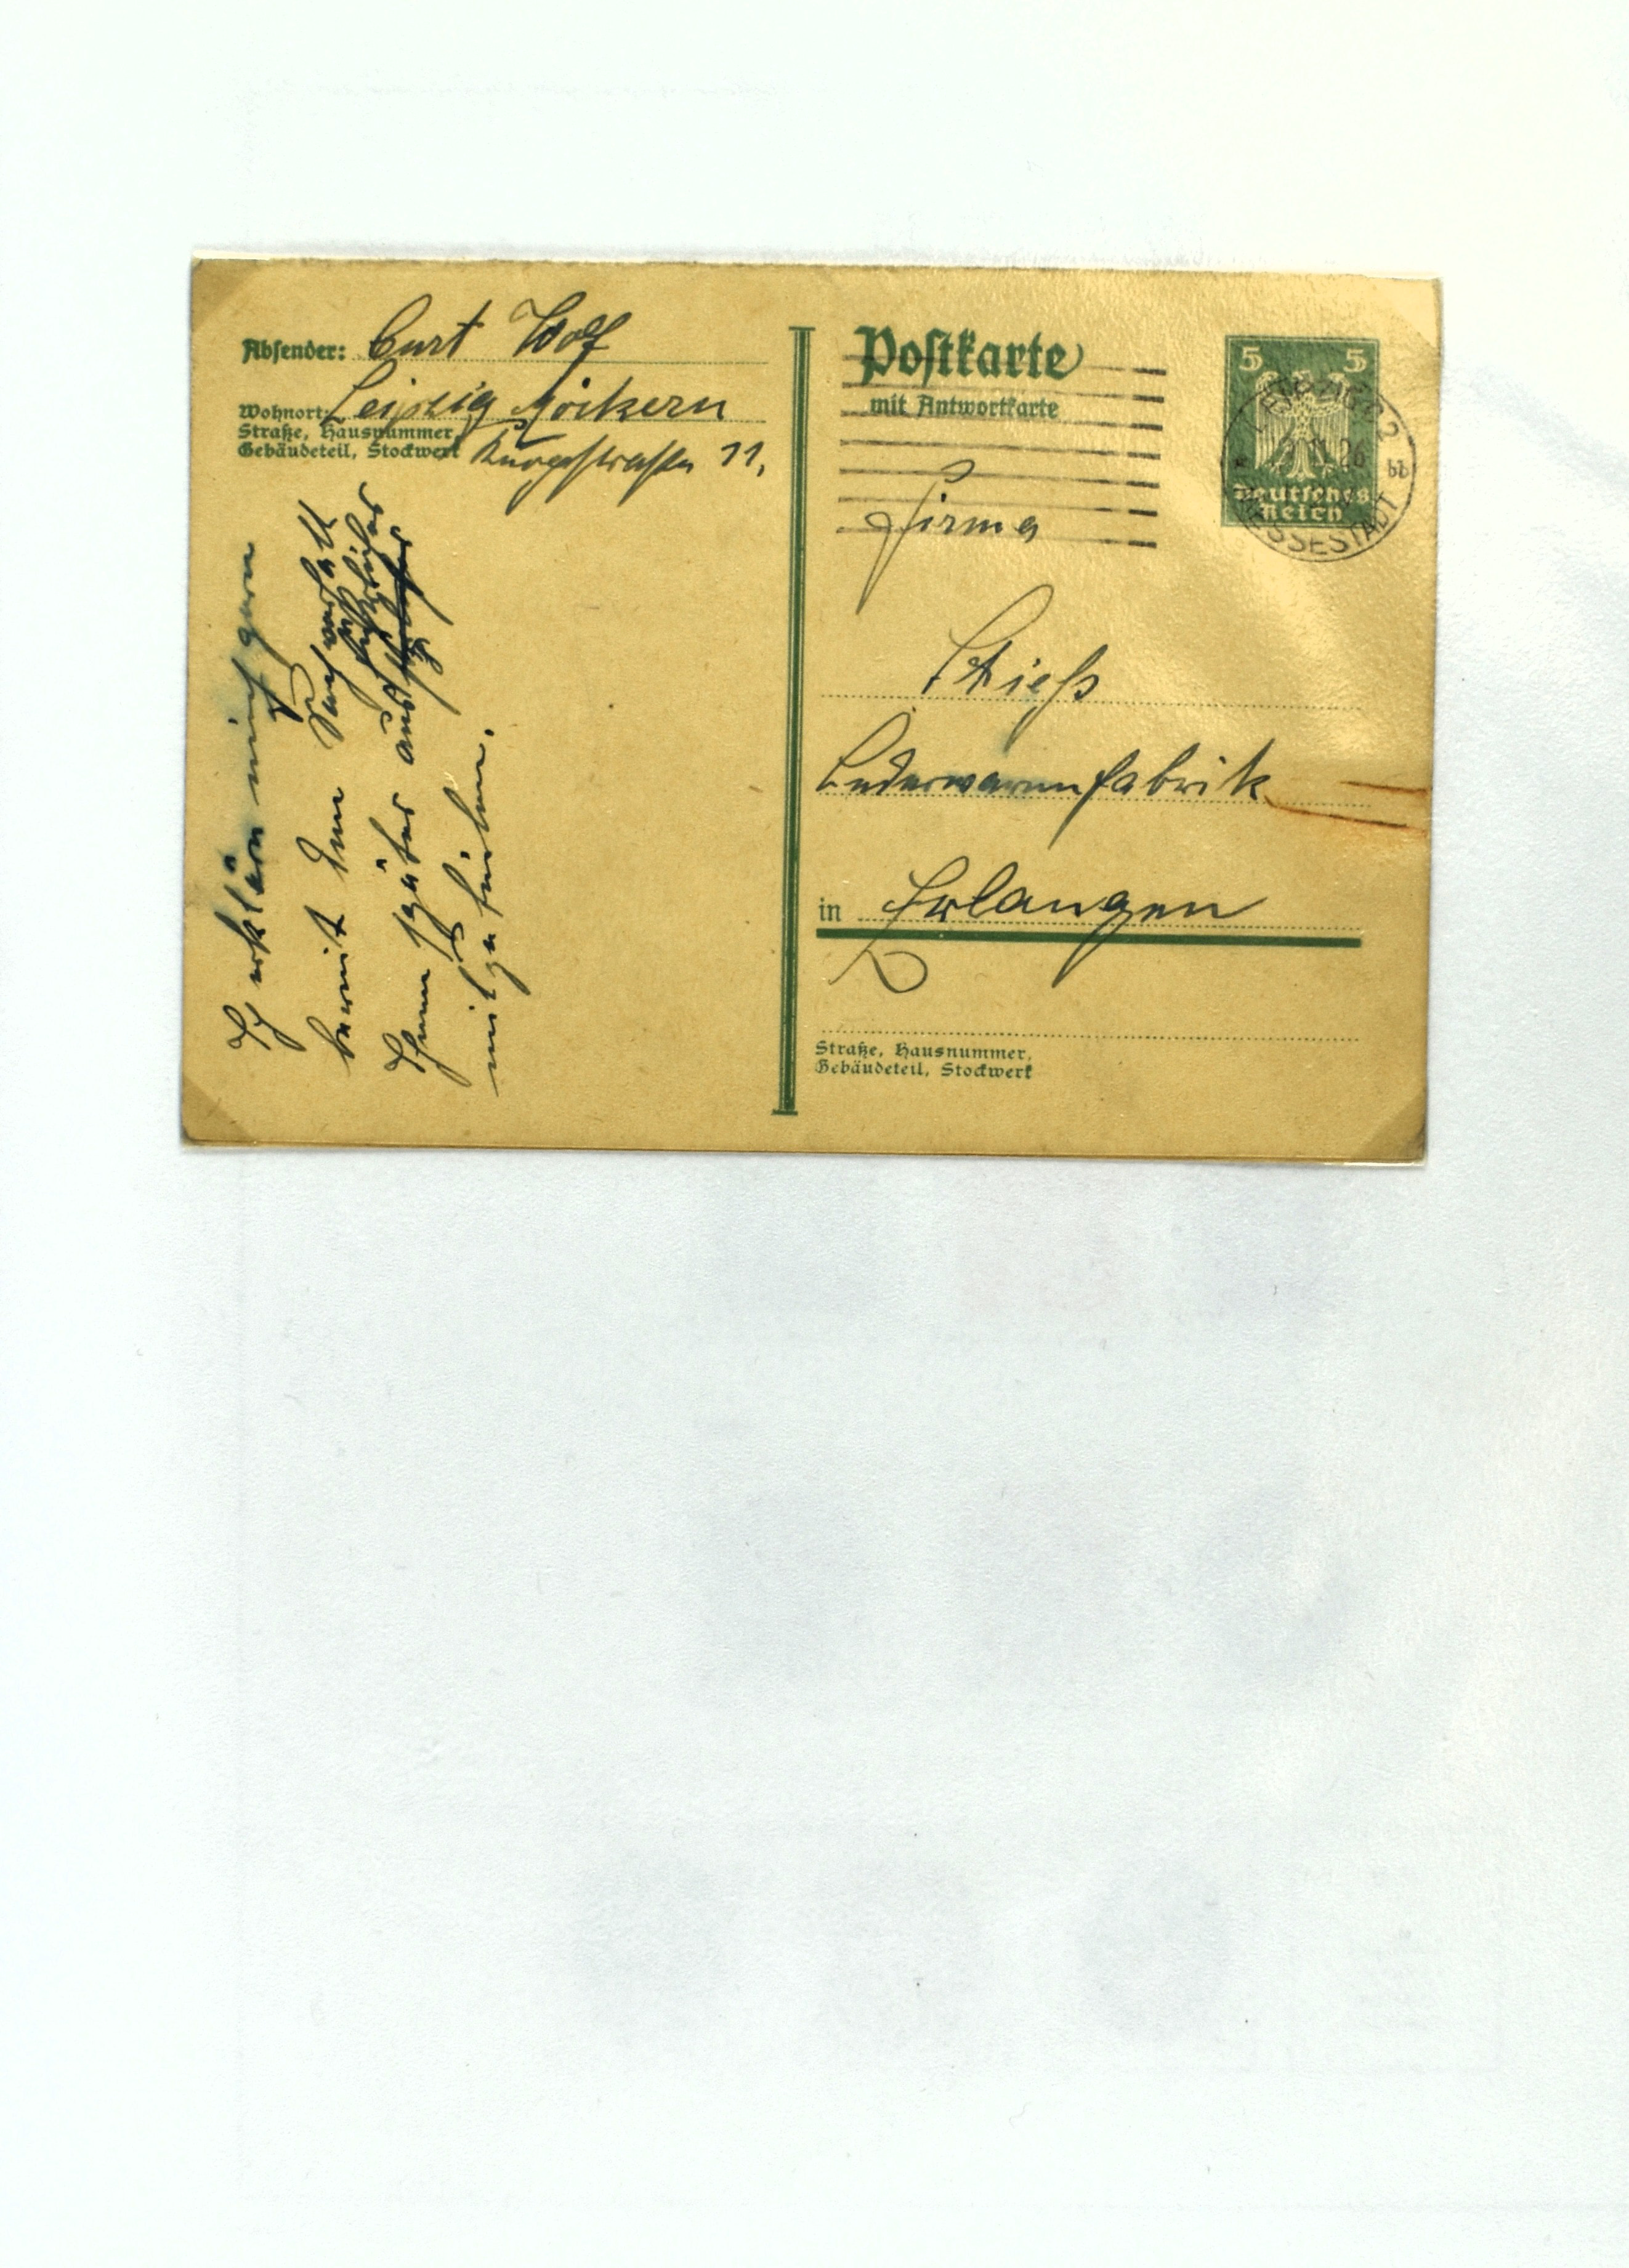 Absender: Curt Wolf
Wohnort: Leipzig Möckern
Straße, Hausnummer,
Gebäudeteil, Stockwerk
11,
Postkarte
mit Antwortkarte
5 5
Deutsches
Reich
LEIPZIG
11.26
bb
MESSESTADT
Firma
Stieß
Lederwarenfabrik
in Erlangen
Straße, Hausnummer,
Gebäudeteil, Stockwerk
Ich erkläre mich gern
bereit den
Ihnen später
mitzuteilen.